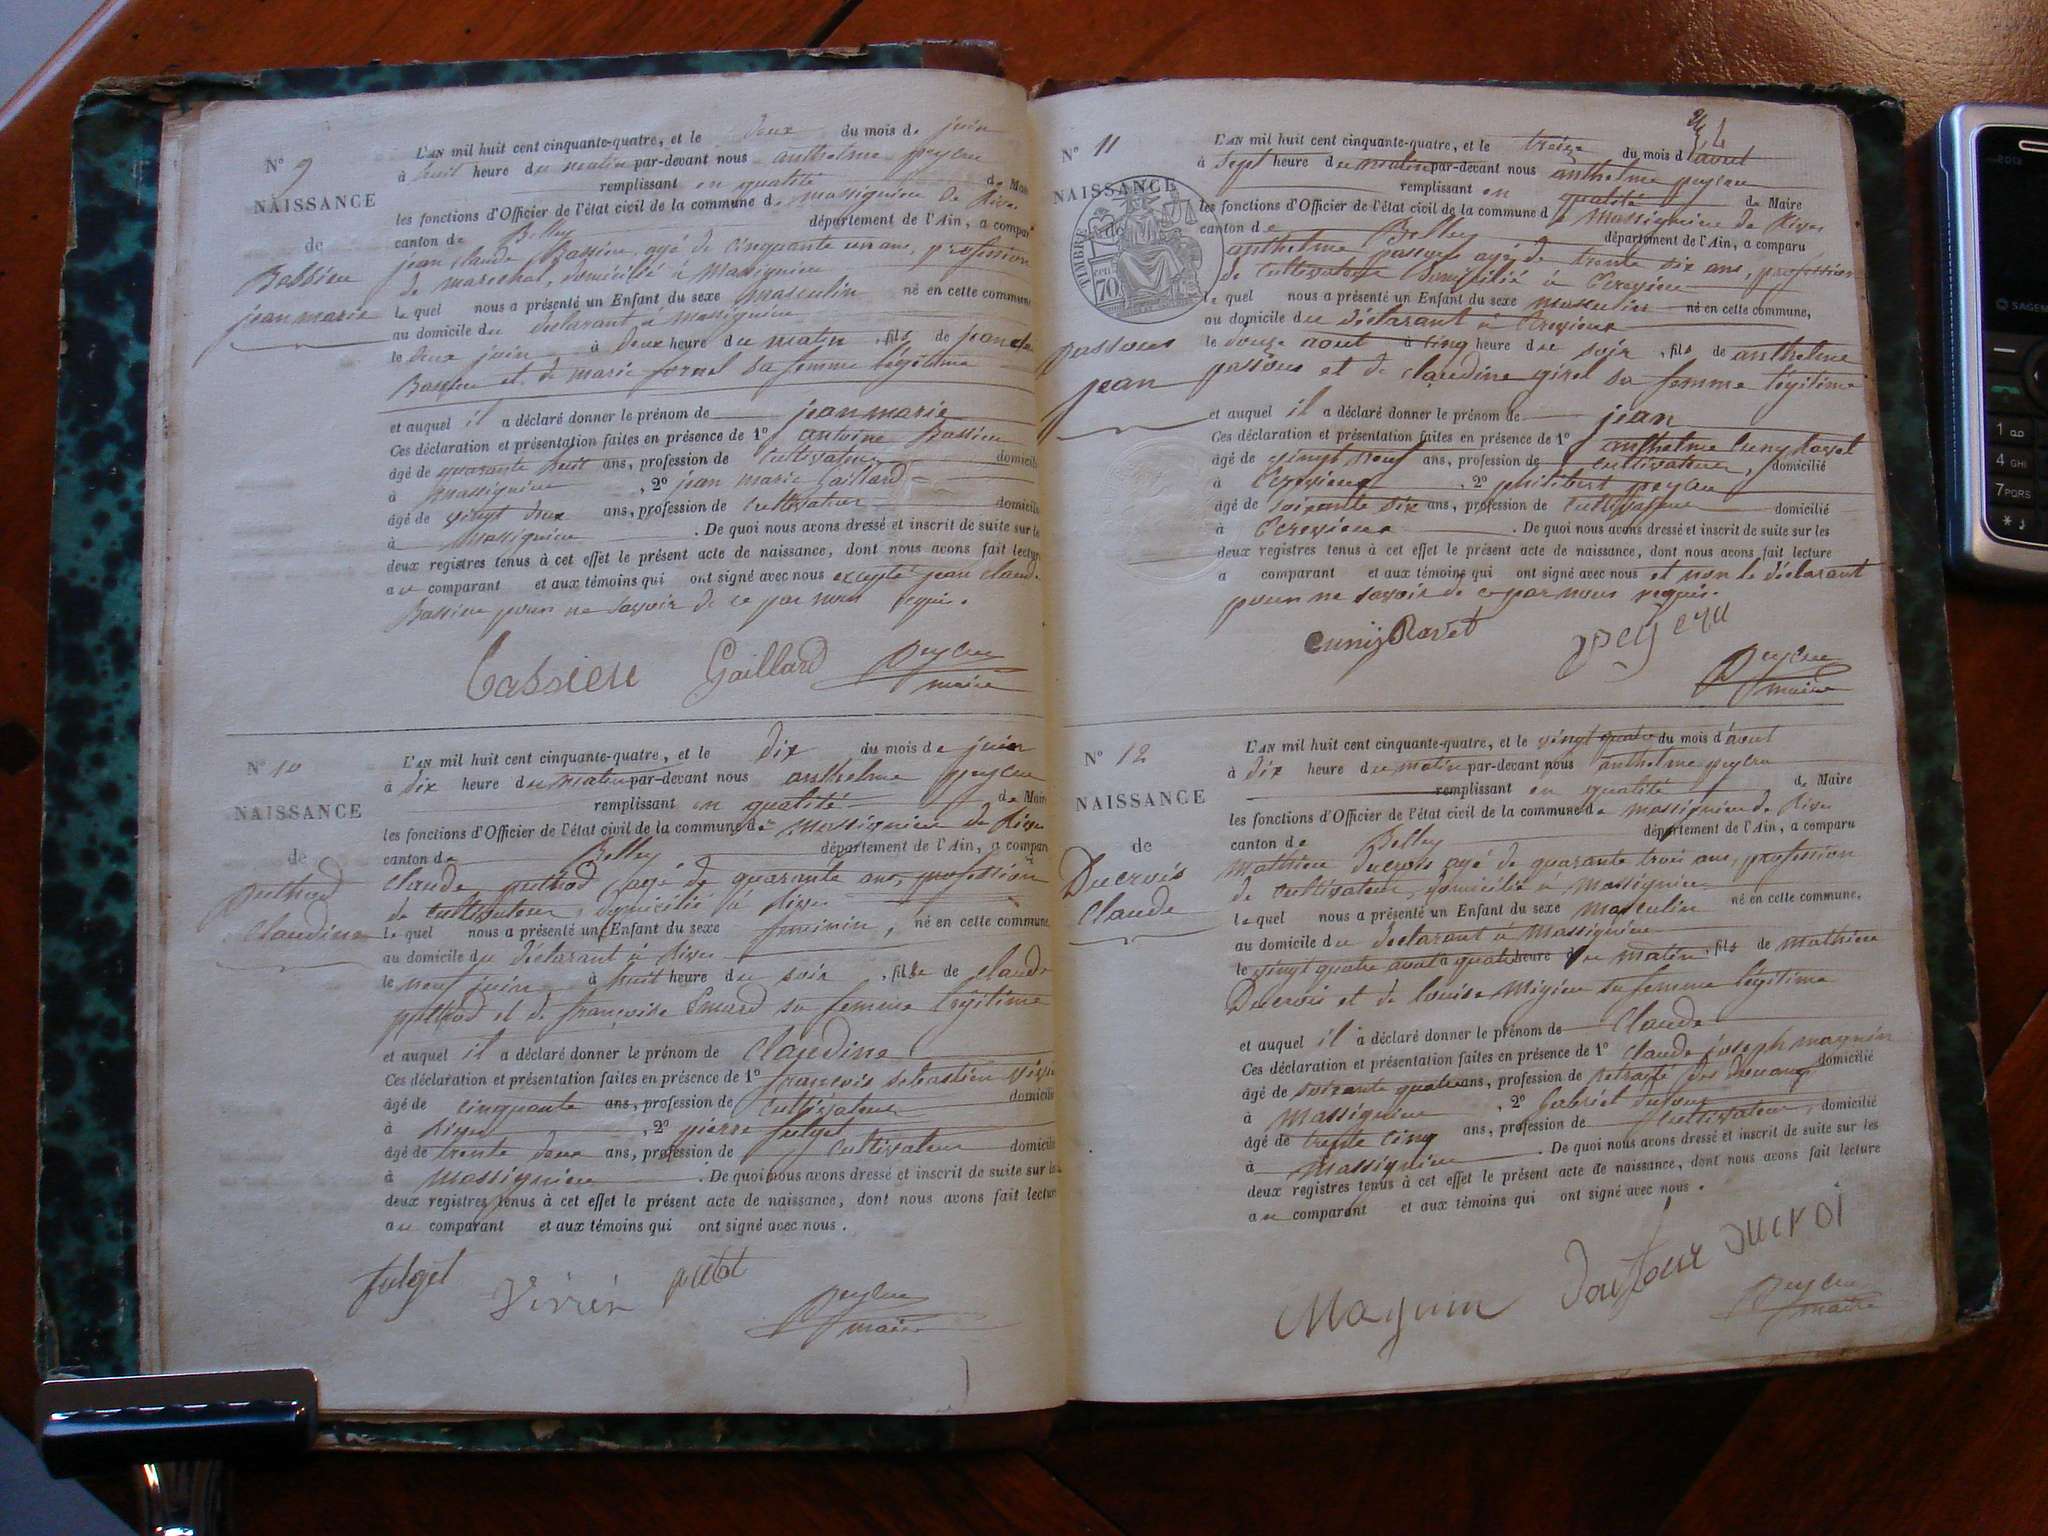 N° 9
NAISSANCE
de
Bassieu
jean marie
L'AN mil huit cent cinquante-quatre, et le deux du mois de juin
à huit heure du matin par-devant nous anthelme peyzeu
remplissant en qualité de Maire
les fonctions d'Officier de l'état civil de la commune de massignieu de Rives
canton de Belley département de l'Ain, a comparu
jean claude Bassieu, agé de cinquante un ans, profession
de marechal, domicilié à Massignieu
le quel nous a présenté un Enfant du sexe masculin né en cette commune
au domicile du déclarant à Massignieu
le deux juin à deux heure du matin, fils de jean claude
Bassieu et de marie fornel sa femme légitime
et auquel il a déclaré donner le prénom de jean marie
Ces déclaration et présentation faites en présence de 1° antoine Bassieu
âgé de quarante huit ans, profession de cultivateur domicilié
à Massignieu, 2° jean marie Gaillard
âgé de vingt deux ans, profession de cultivateur domicilié
à Massignieu. De quoi nous avons dressé et inscrit de suite sur les
deux registres tenus à cet effet le présent acte de naissance, dont nous avons fait lecture
au comparant et aux témoins qui ont signé avec nous excepté jean claude
Bassieu pour ne savoir de ce par nous requis.
Bassieu Gaillard
maire
N° 10
NAISSANCE
de
puthod
Claudine
L'AN mil huit cent cinquante-quatre, et le dix du mois de juin
à dix heure du matin par-devant nous anthelme peyzeu
remplissant en qualité de Maire
les fonctions d'Officier de l'état civil de la commune de Massignieu de Rives
canton de Belley département de l'Ain, a comparu
claude puthod, agé de quarante ans, profession
de cultivateur, domicilié à Rives
le quel nous a présenté un Enfant du sexe feminin, né en cette commune
au domicile du déclarant à Rives
le neuf juin à huit heure du soir, fille de claude
puthod et de françoise Emard sa femme légitime
et auquel il a déclaré donner le prénom de Claudine
Ces déclaration et présentation faites en présence de 1° françois sébastien
âgé de cinquante ans, profession de cultivateur domicilié
à Rives, 2° pierre fulget
âgé de trente deux ans, profession de cultivateur domicilié
à Massignieu. De quoi nous avons dressé et inscrit de suite sur les
deux registres tenus à cet effet le présent acte de naissance, dont nous avons fait lecture
au comparant et aux témoins qui ont signé avec nous.
fulget
maire
N° 11
NAISSANCE
de
TIMBRE
70
passous
jean
L'AN mil huit cent cinquante-quatre, et le treize du mois d'août
à sept heure du matin par-devant nous anthelme peyzeu
remplissant en qualité de Maire
les fonctions d'Officier de l'état civil de la commune de Massignieu de Rives
canton de Belley département de l'Ain, a comparu
anthelme passous agé de trente six ans, profession
de cultivateur domicilié à
le quel nous a présenté un Enfant du sexe masculin né en cette commune,
au domicile du déclarant à
le douze aout à cinq heure du soir, fils de anthelme
passous et de claudine girel sa femme légitime
et auquel il a déclaré donner le prénom de jean
Ces déclaration et présentation faites en présence de 1° anthelme Cuny Ravet
âgé de vingt neuf ans, profession de cultivateur, domicilié
à, 2° philibert peyzeu
âgé de soixante six ans, profession de cultivateur domicilié
à. De quoi nous avons dressé et inscrit de suite sur les
deux registres tenus à cet effet le présent acte de naissance, dont nous avons fait lecture
a comparant et aux témoins qui ont signé avec nous et non le déclarant
pour ne savoir de ce par nous requis.
Cuny Ravet
maire
N° 12
NAISSANCE
de
Ducrois
Claude
L'AN mil huit cent cinquante-quatre, et le vingt quatre du mois d'août
à dix heure du matin par-devant nous anthelme peyzeu
remplissant en qualité de Maire
les fonctions d'Officier de l'état civil de la commune de massignieu de Rives
canton de Belley département de l'Ain, a comparu
Mathieu Ducrois agé de quarante trois ans, profession
de cultivateur, domicilié à Massignieu
le quel nous a présenté un Enfant du sexe masculin né en cette commune,
au domicile du déclarant à Massignieu
le vingt quatre aout à quatre heure du matin, fils de mathieu
Ducrois et de louise Migieu sa femme légitime
et auquel il a déclaré donner le prénom de Claude
Ces déclaration et présentation faites en présence de 1° Claude joseph magnin
âgé de soixante quatre ans, profession de Retraité des Douanes domicilié
à Massignieu, 2° Gabriel dufour
âgé de trente cinq ans, profession de cultivateur, domicilié
à Massignieu. De quoi nous avons dressé et inscrit de suite sur les
deux registres tenus à cet effet le présent acte de naissance, dont nous avons fait lecture
au comparant et aux témoins qui ont signé avec nous.
Magnin Dufour ducroi
maire
SAGEM
1
4 GHI
7 PQRS
*